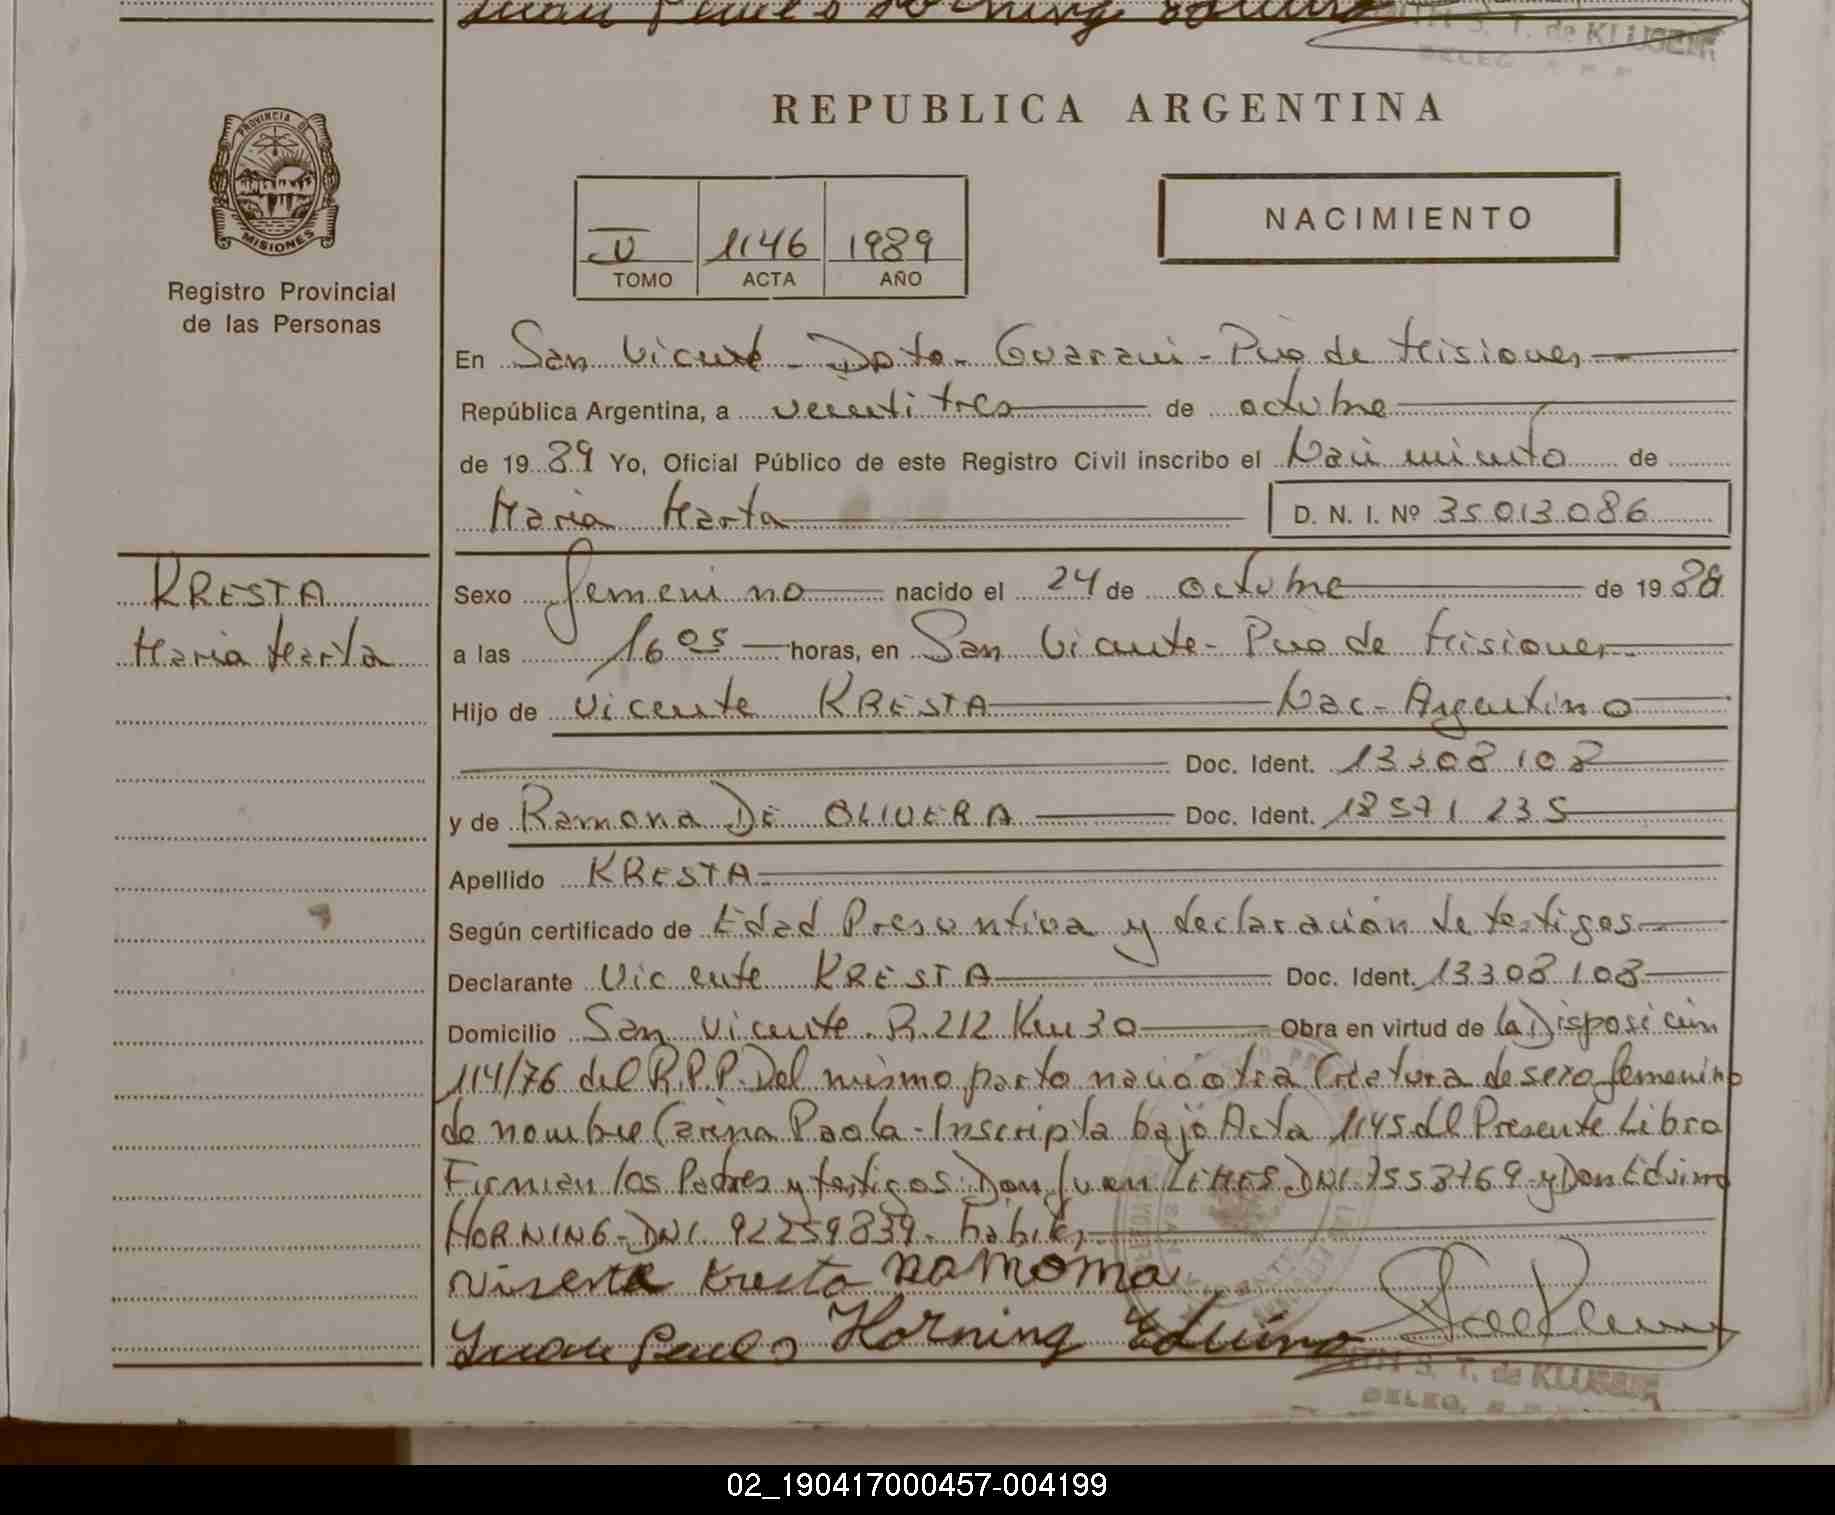 REPUBLICA ARGENTINA
PROVINCIA DE
MISIONES
Registro Provincial
de las Personas
1146 1989
TOMO ACTA AÑO
NACIMIENTO
En San Vicente - Dpto - Guarani - Pvia de Misiones
República Argentina, a veinti tres de octubre
de 19 89 Yo, Oficial Público de este Registro Civil inscribo el Nacimiento de
Maria Marta D. N. I. Nº 35013086
KRESTA
Maria Marta
Sexo femenino nacido el 24 de octubre de 19
a las 16 05 horas, en San Vicente - Pvia de Misiones
Hijo de Vicente KRESTA Nac - Argentino
Doc. Ident. 13308108
y de Ramona DE OLIVERA Doc. Ident. 18571235
Apellido KRESTA
Según certificado de Edad Presuntiva y declaración de testigos
Declarante Vicente KRESTA Doc. Ident. 13308108
Domicilio San Vicente - R. 212 Km 30 Obra en virtud de la Disposición
114/76 del R.P.P. Del mismo parto nació otra Criatura de sexo femenino
de nombre Carina Paola - Inscripta bajo Acta 1145 del Presente Libro
Firman los Padres y testigos: Don Juan DNI. 7558769 - y Don Eduino
HORNING - DNI. 92259839 - habiles
Visente Kresta Ramoma
Juan Horning Eduino
S. T. de KLUSENER
DELEG.
02_190417000457-004199